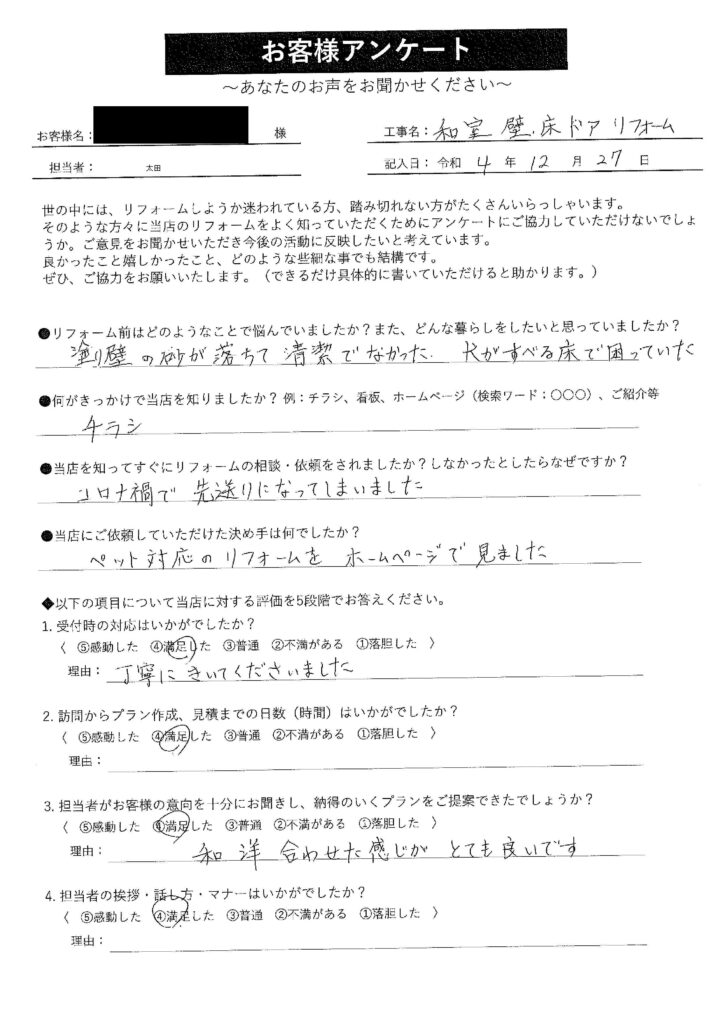 お客様アンケート
～あなたのお声をお聞かせください～
お客様名： 様
工事名：和室 壁、床ドア リフォーム
担当者： 太田
記入日：令和 4 年 12 月 27 日
世の中には、リフォームしようか迷われている方、踏み切れない方がたくさんいらっしゃいます。
そのような方々に当店のリフォームをよく知っていただくためにアンケートにご協力していただけないでしょ
うか。ご意見をお聞かせいただき今後の活動に反映したいと考えています。
良かったこと嬉しかったこと、どのような些細な事でも結構です。
ぜひ、ご協力をお願いいたします。（できるだけ具体的に書いていただけると助かります。）
●リフォーム前はどのようなことで悩んでいましたか？また、どんな暮らしをしたいと思っていましたか？
塗り壁の砂が落ちて清潔でなかった. 犬がすべる床で困っていた
●何がきっかけで当店を知りましたか？ 例：チラシ、看板、ホームページ（検索ワード：〇〇〇）、ご紹介等
チラシ
●当店を知ってすぐにリフォームの相談・依頼をされましたか？しなかったとしたらなぜですか？
コロナ禍で 先送りになってしまいました
●当店にご依頼していただけた決め手は何でしたか？
ペット対応のリフォームを ホームページで見ました
◆以下の項目について当店に対する評価を5段階でお答えください。
1. 受付時の対応はいかがでしたか？
〈 ⑤感動した ④満足した ③普通 ②不満がある ①落胆した 〉
理由： 丁寧にきいてくださいました
2. 訪問からプラン作成、見積までの日数（時間）はいかがでしたか？
〈 ⑤感動した ④満足した ③普通 ②不満がある ①落胆した 〉
理由：
3. 担当者がお客様の意向を十分にお聞きし、納得のいくプランをご提案できたでしょうか？
〈 ⑤感動した ④満足した ③普通 ②不満がある ①落胆した 〉
理由： 和洋合わせた感じがとても良いです
4. 担当者の挨拶・話し方・マナーはいかがでしたか？
〈 ⑤感動した ④満足した ③普通 ②不満がある ①落胆した 〉
理由：